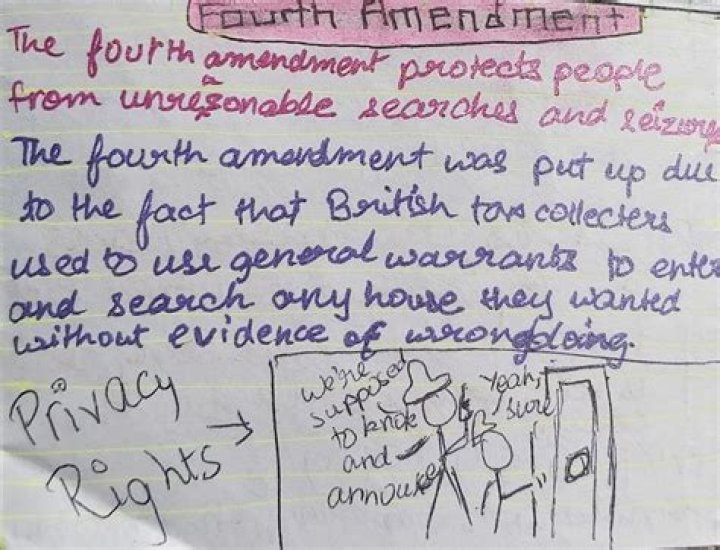 Fourth Amendment
The fourth amendment protects people
from unresonable searches and seizure
The fourth amendment was put up due
to the fact that British tax collecters
used to use general warrants to enter
and search any house they wanted
without evidence of wrongdoing.
Privacy
Rights →
we're
supposed
to knock
and
announce
Yeah,
sure